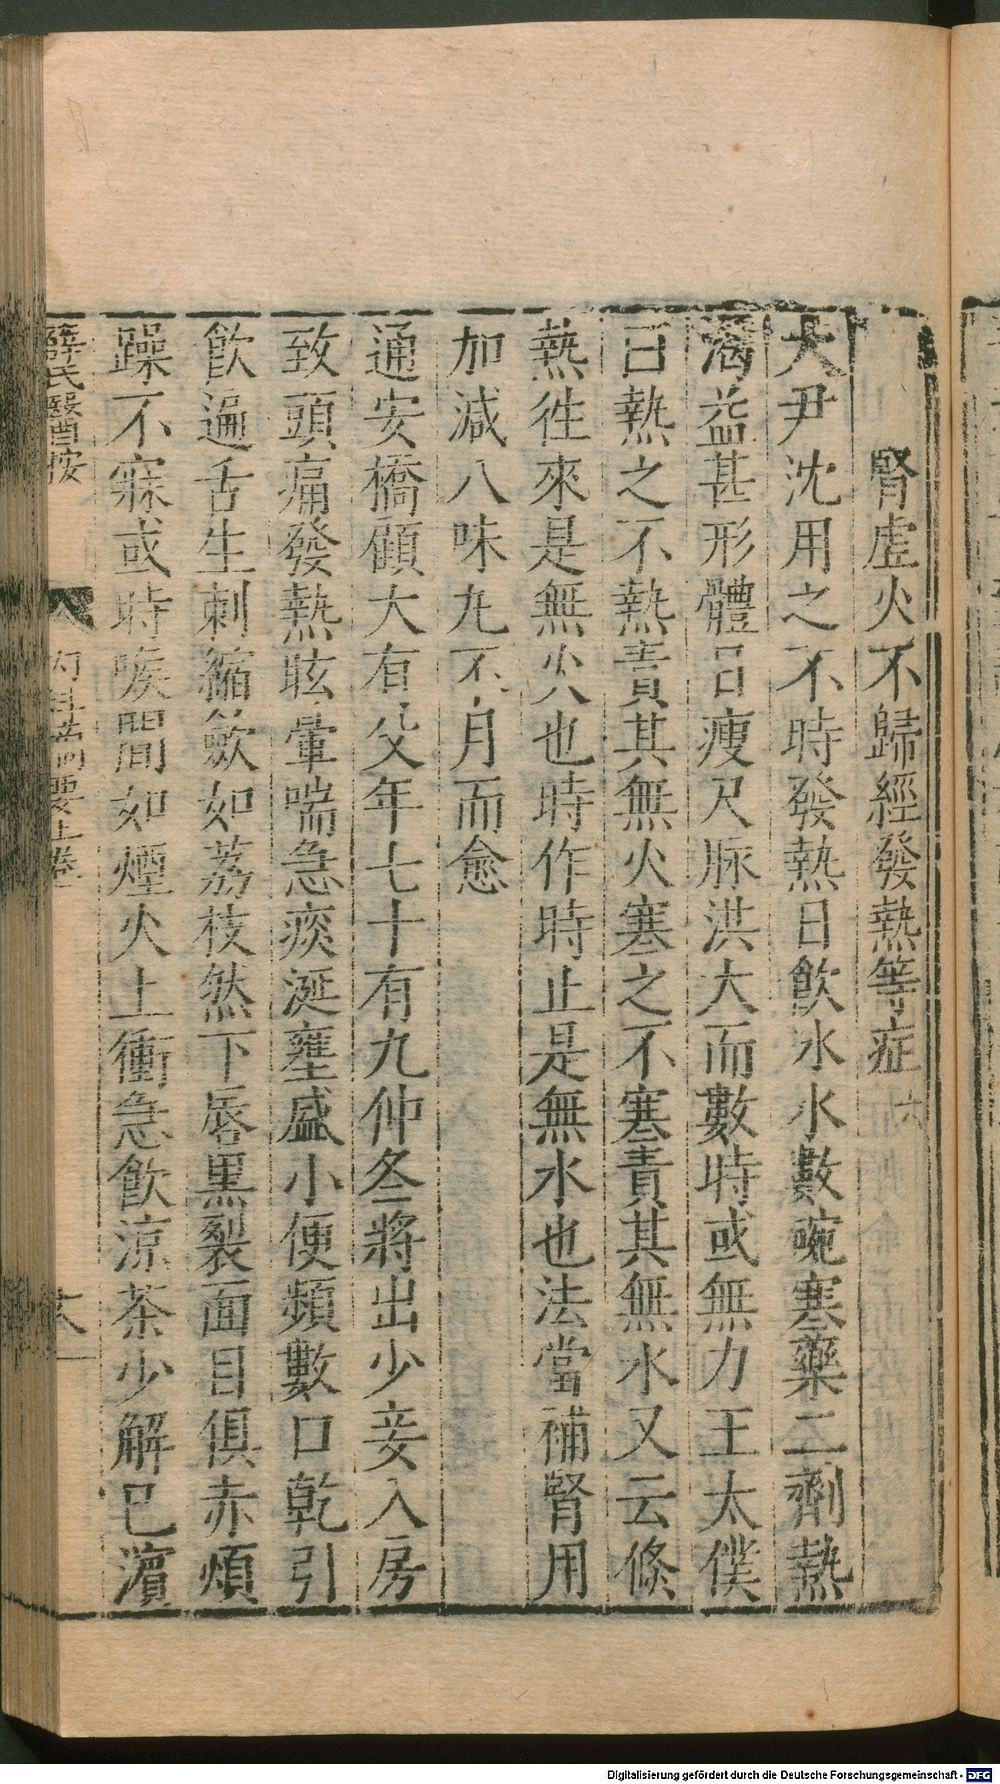 腎虛火不歸經發熱等症 六
大尹沈用之不時發熱日飲氷水數碗寒藥二劑熱
渴益甚形體日瘦尺脉洪大而數時或無力王太僕
曰熱之不熱責其無火寒之不寒責其無水又云倏
熱徃來是無火也時作時止是無水也法當補腎用
加減八味丸不月而愈
通安橋顧大有父年七十有九仲冬將出少妾入房
致頭痛發熱眩暈喘急痰涎壅盛小便頻數口乾引
飲遍舌生刺縮歛如荔枝然下唇黑裂面目俱赤煩
躁不寐或時喉間如煙火上衝急飲涼茶少解已濵
薛氏醫按 內科摘要上卷
Digitalisierung gefördert durch die Deutsche Forschungsgemeinschaft - DFG